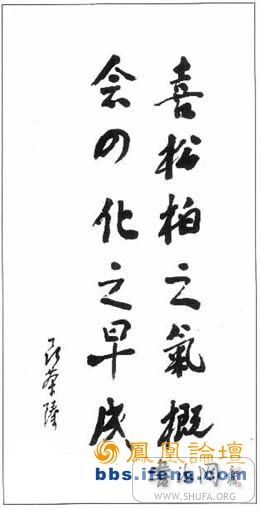 喜松柏之氣概
会四化之早成
鳳凰論壇
bbs.ifeng.com
WWW.SHUFA.ORG